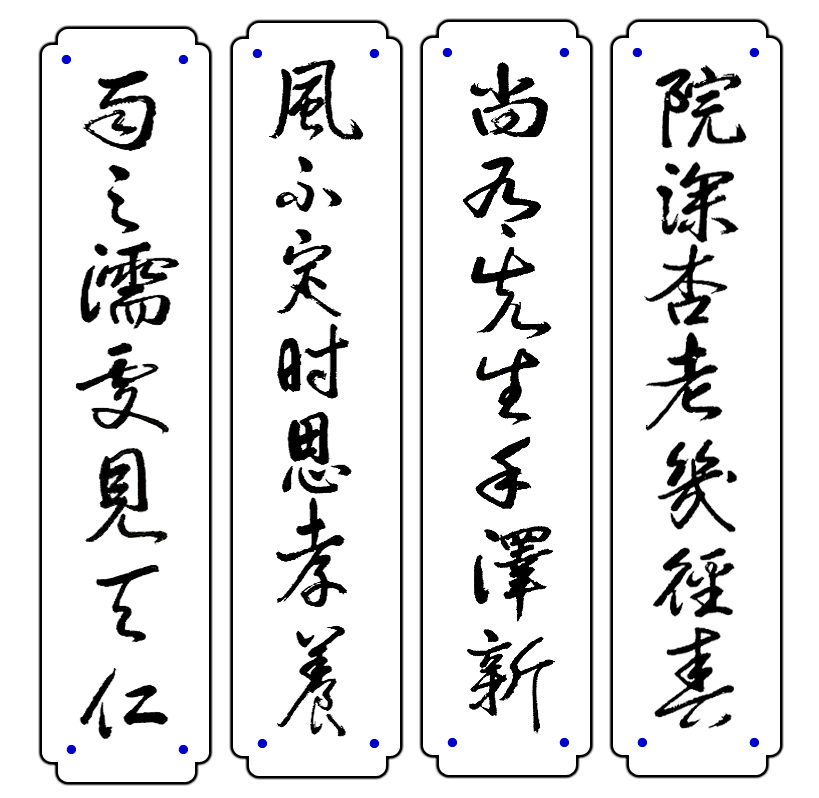 院深杏老幾經春
尚有先生手澤新
風不定时思孝養
雨之濡處見天仁